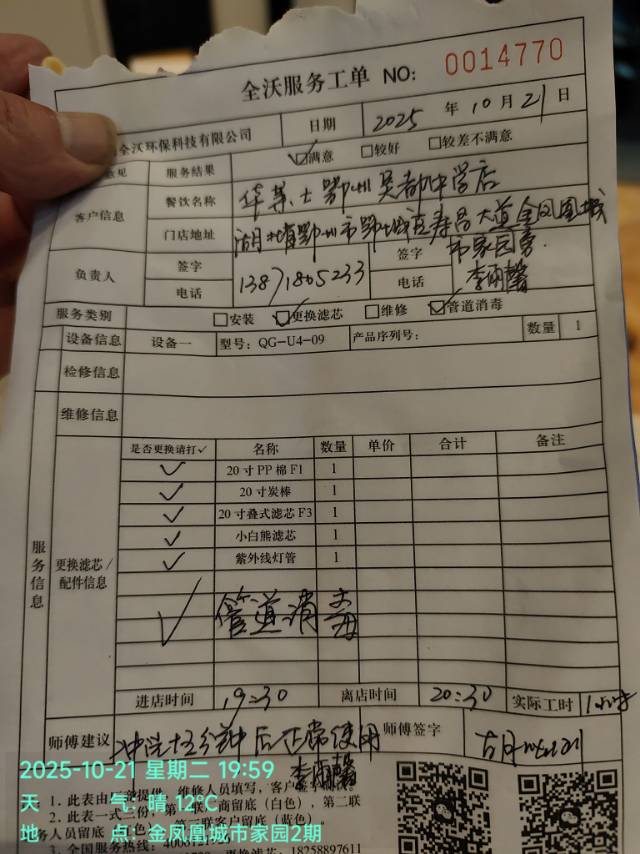 全沃服务工单 NO: 0014770
全沃环保科技有限公司 日期 2025 年 10 月 21 日
意见 服务结果 ☑满意 □较好 □较差不满意
客户信息 餐饮名称 华莱士鄂州吴都中学店
门店地址 湖北省鄂州市鄂城区寿昌大道金凤凰城
市家园
负责人 签字 签字 李雨馨
电话 13871805233 电话
服务类别 □安装 ☑更换滤芯 □维修 ☑管道消毒
设备信息 设备一 型号: QG-U4-09 产品序列号: 数量 1
检修信息
维修信息
服务信息
更换滤芯/配件信息
是否更换请打✓ 名称 数量 单价 合计 备注
✓ 20寸PP棉F1 1
✓ 20寸炭棒 1
✓ 20寸叠式滤芯F3 1
✓ 小白熊滤芯 1
✓ 紫外线灯管 1
✓ 管道消毒
进店时间 19:30 离店时间 20:30 实际工时 1小时
师傅建议 冲洗十五分钟后正常使用 师傅签字
李雨馨
2025-10-21 星期二 19:59
天 气: 晴 12℃
地 点: 金凤凰城市家园2期
1. 此表由 提供,维修人员填写,客户
2. 此表一式三份,第一联 商留底(白色),第二联
务人员留底 客户留底(蓝色)。
3. 全国服务热线: 18258897611